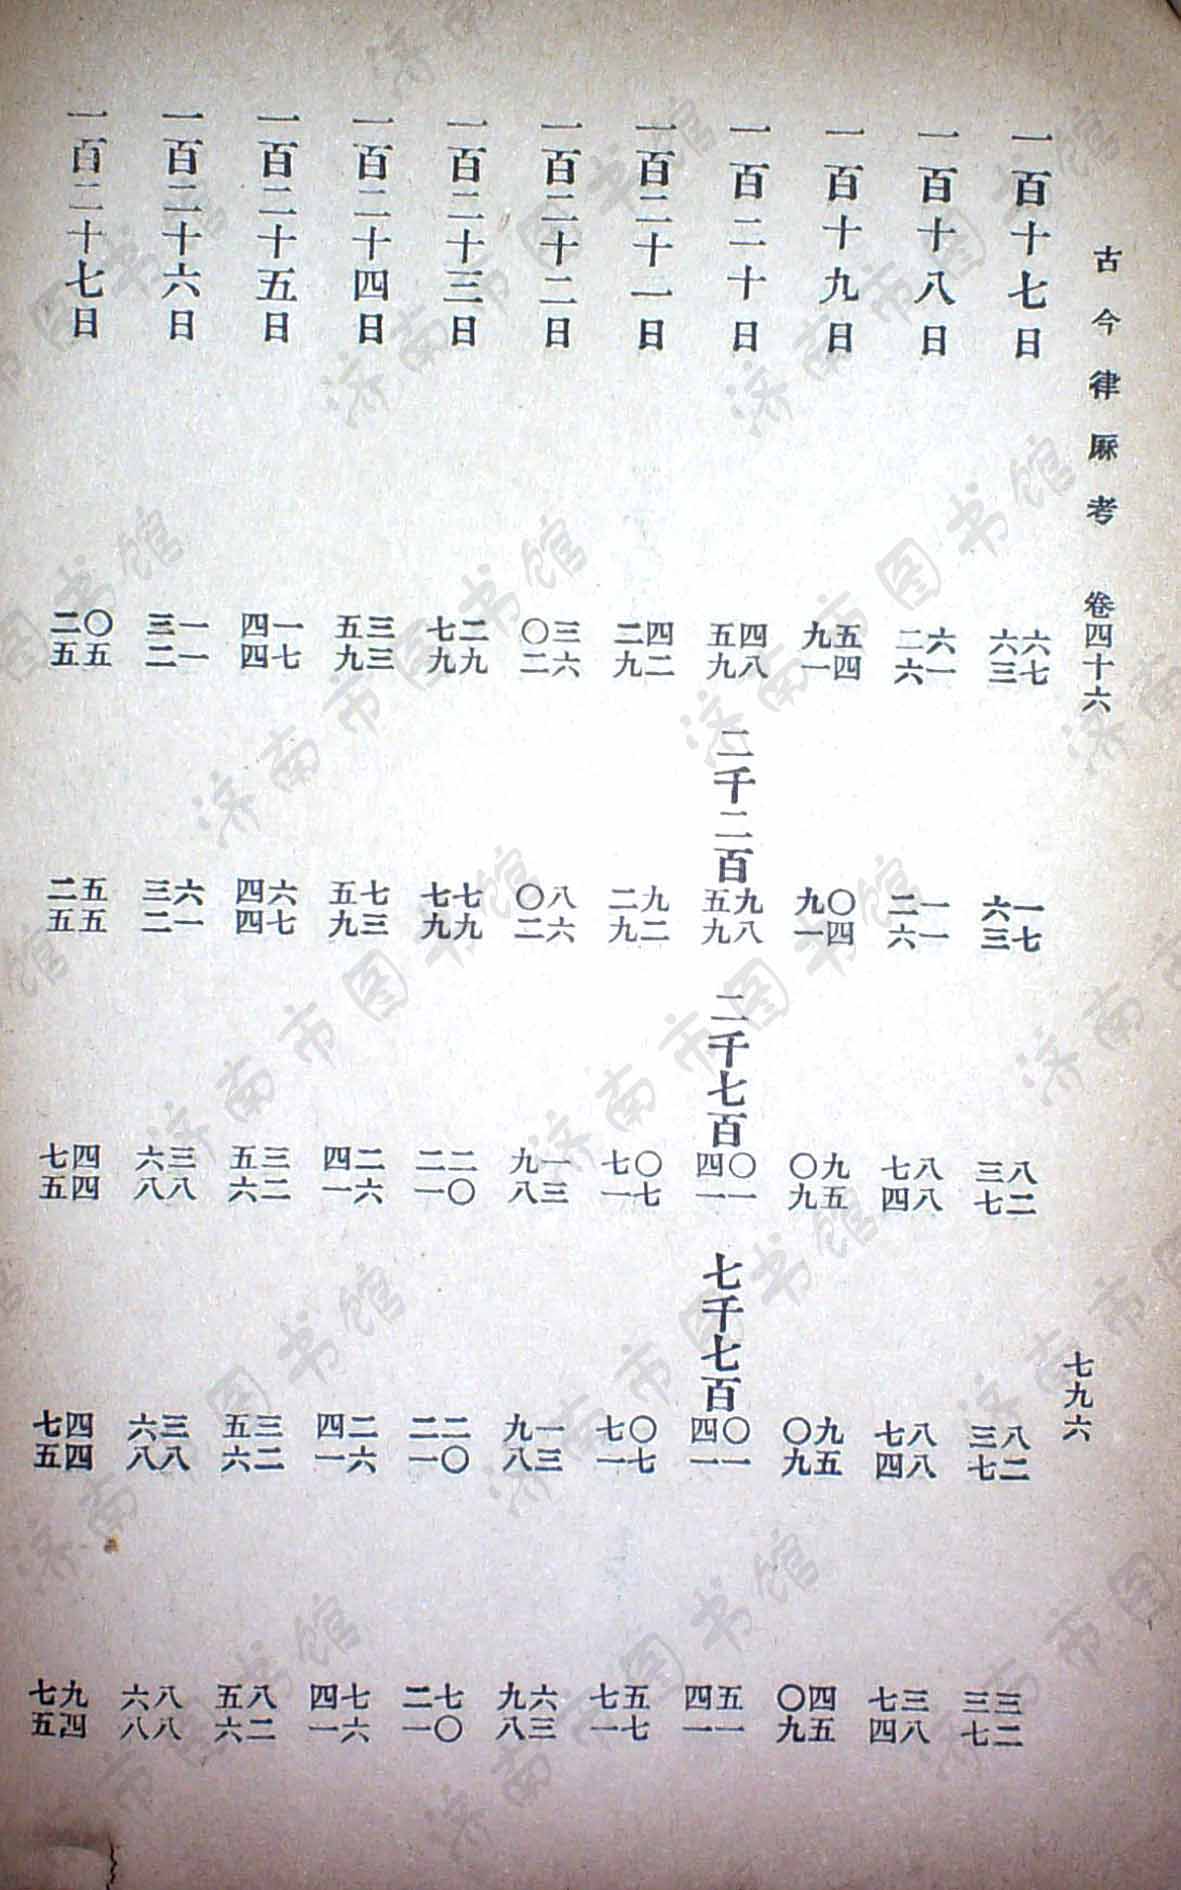 古今律厤考 卷四十六 七九六
一百十七日 六七六三 一七六三 八二三七 八二三七 三二三七
一百十八日 六一二六 一一二六 八八七四 八八七四 三八七四
一百十九日 五四九一 〇四九一 九五〇九 九五〇九 四五〇九
一百二十日 四八五九 二千二百九八五九 二千七百〇一四一 七千七百〇一四一 五一四一
一百二十一日 四二二九 九二二九 〇七七一 〇七七一 五七七一
一百二十二日 三六〇二 八六〇二 一三九八 一三九八 六三九八
一百二十三日 二九七九 七九七九 二〇二一 二〇二一 七〇二一
一百二十四日 三三五九 七三五九 二六四一 二六四一 七六四一
一百二十五日 一七四四 六七四四 三二五六 三二五六 八二五六
一百二十六日 一一三二 六一三二 三八六八 三八六八 八八六八
一百二十七日 〇五二五 五五二五 四四七五 四四七五 九四七五
济南市图书馆